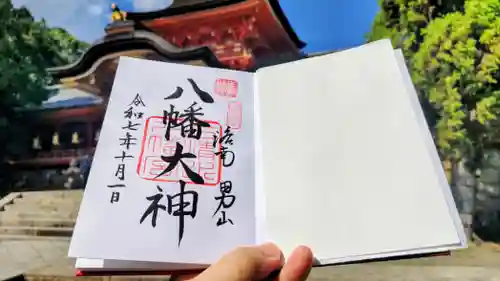 洛南 男山
八幡大神
令和七年十月一日